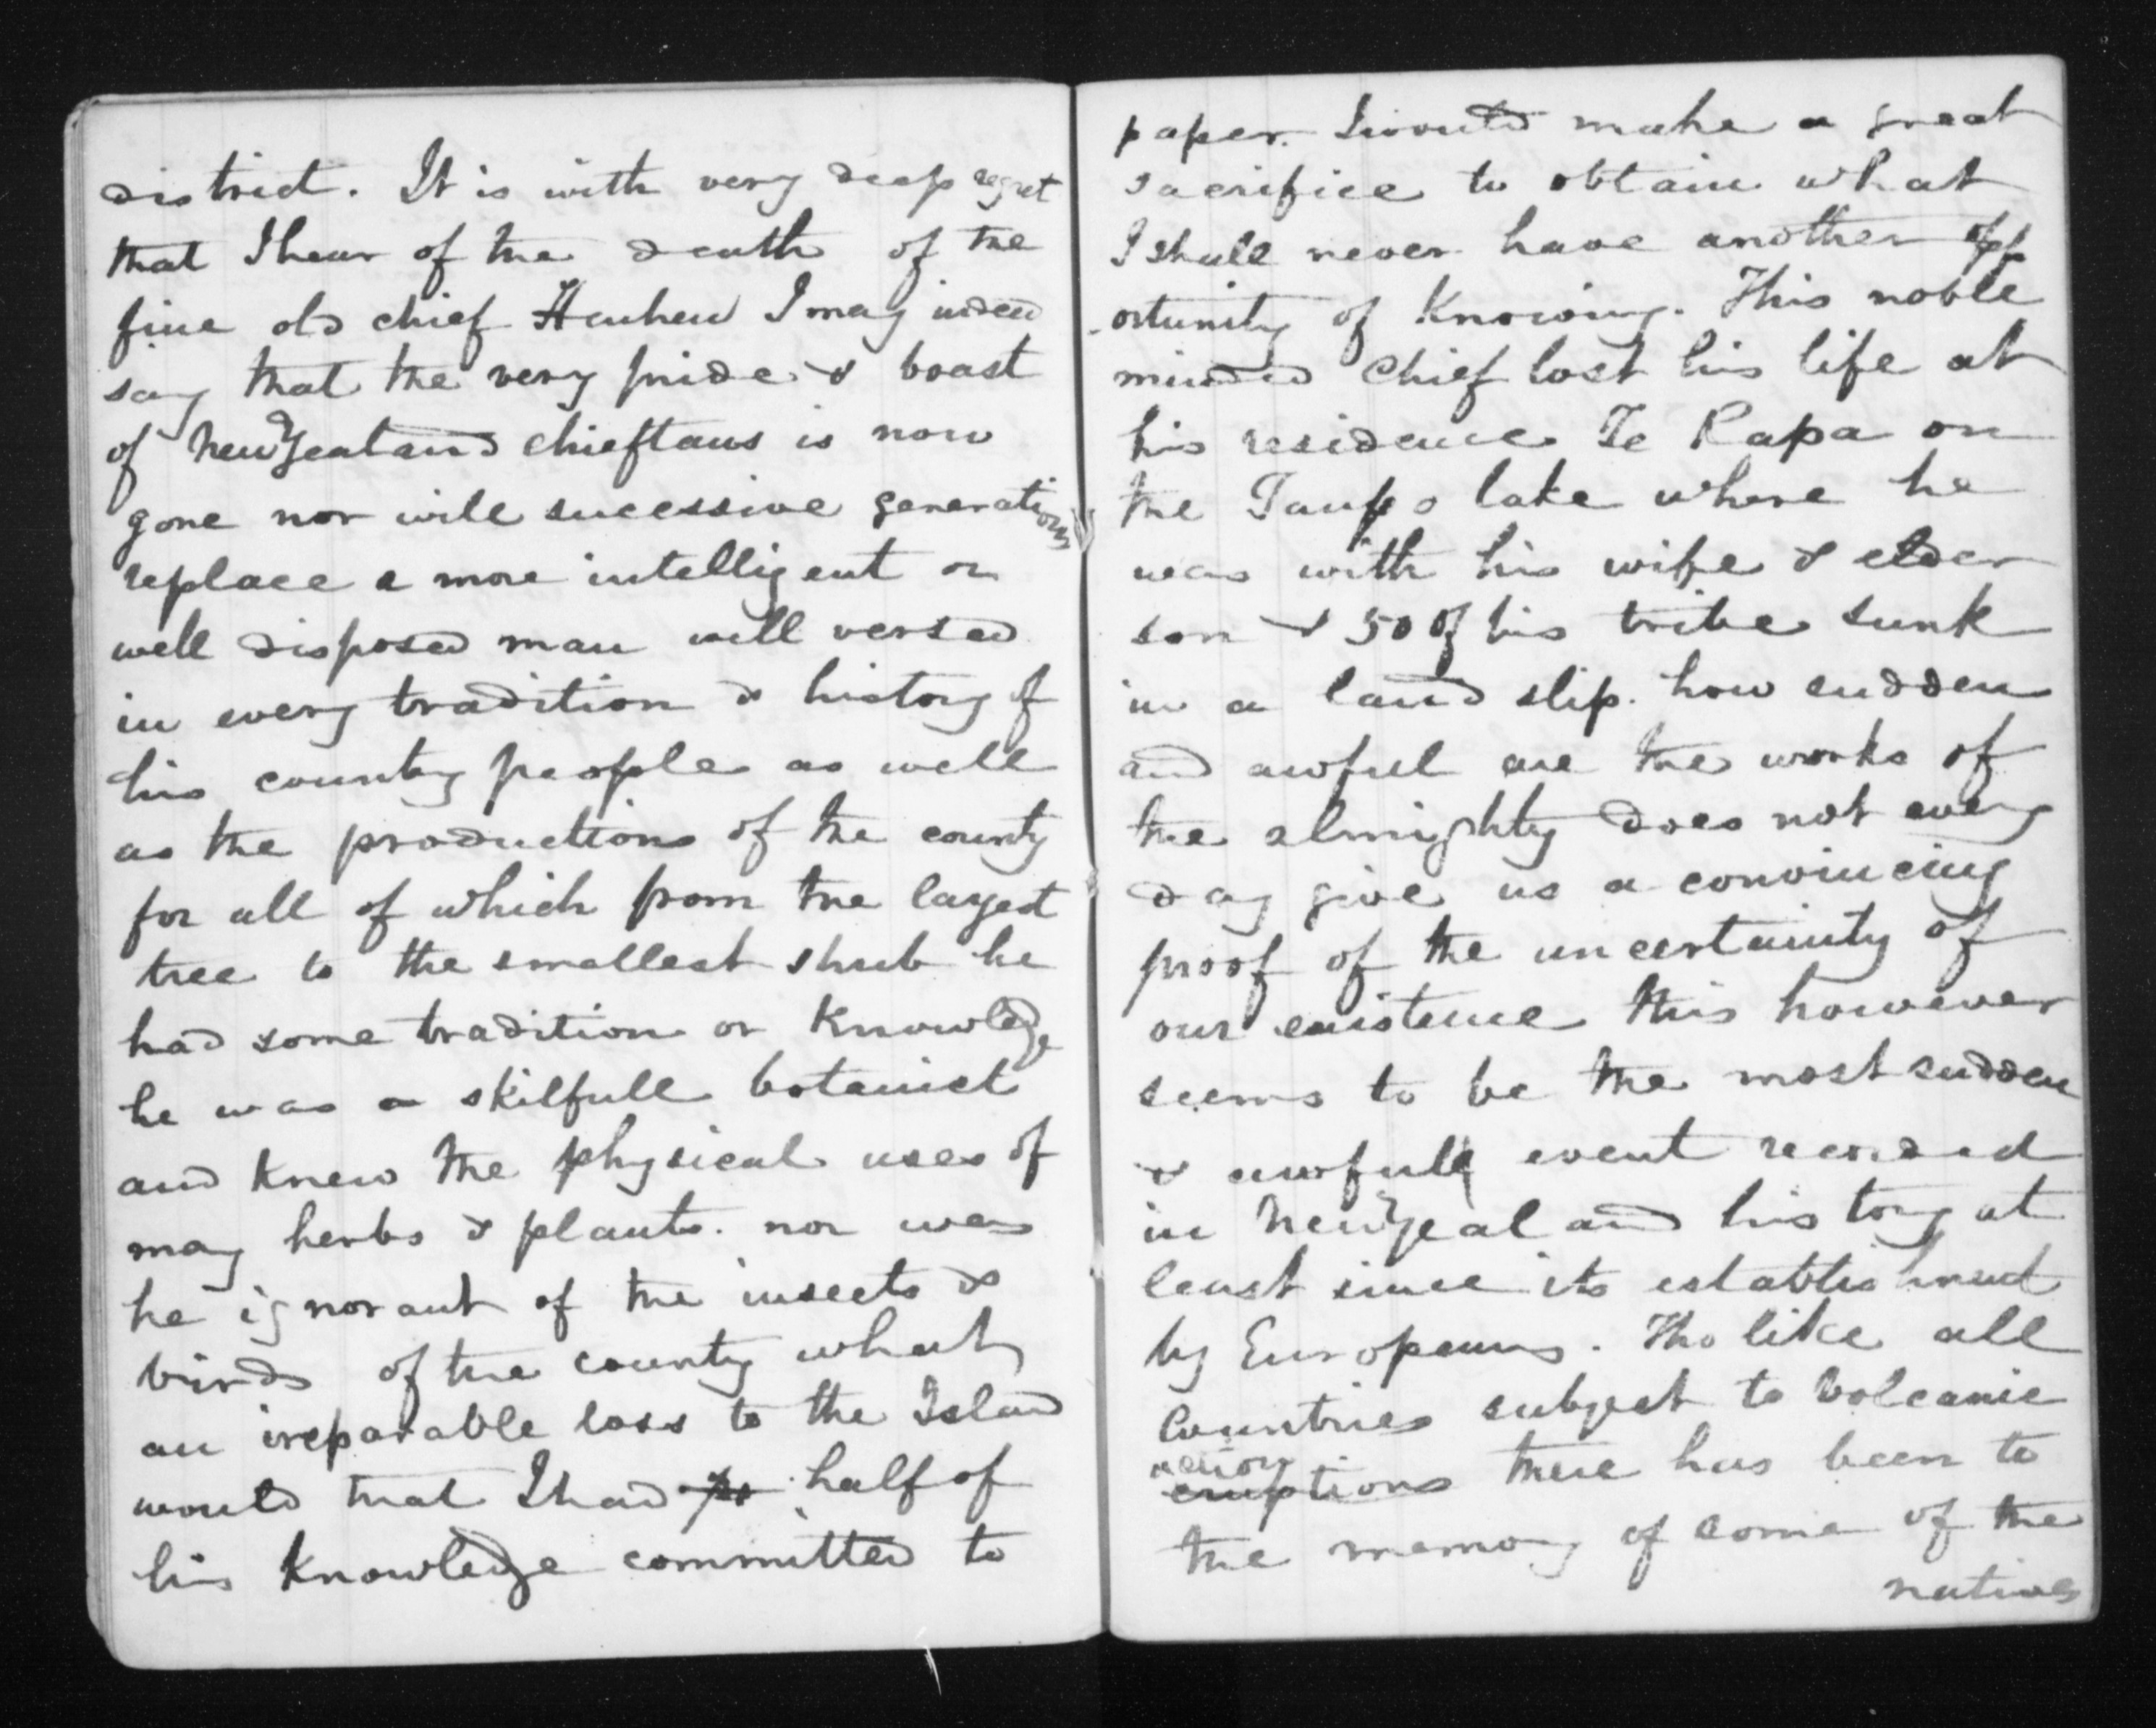 district. It is with very deep regret
that I hear of the death of the
fine old chief Heuheu I may indeed
say that the very pride & boast
of New Zealand chieftans is now
gone nor will sucessive generations
replace a more intelligent or
well disposed man well versed
in every tradition & history of
his county people as well
as the productions of the county
for all of which from the largest
tree to the smallest shrub he
had some tradition or knowledge
he was a skilfull botanist
and knew the physical uses of
may herbs & plants. nor was
he ignorant of the insects &
birds of the county what
an ireparable loss to the Island
would that I had half of
his knowledge committed to
paper. I would make a great
sacrifice to obtain what
I shall never have another opp
-ortunity of knowing. This noble
minded chief lost his life at
his residence Te Rapa on
the Taupo lake where he
was with his wife & elder
son & 50 of his tribe sunk
in a land slip. how sudden
and awful are the works of
the almighty does not every
day give us a convincing
proof of the uncertainty of
our existence this however
seems to be the most sudden
& awfull event recorded
in New Zealand history at
least since its establishmet
by Europeans. Tho like all
Countries subject to volcanic
eruptions there has been to
the memory of some of the
natives